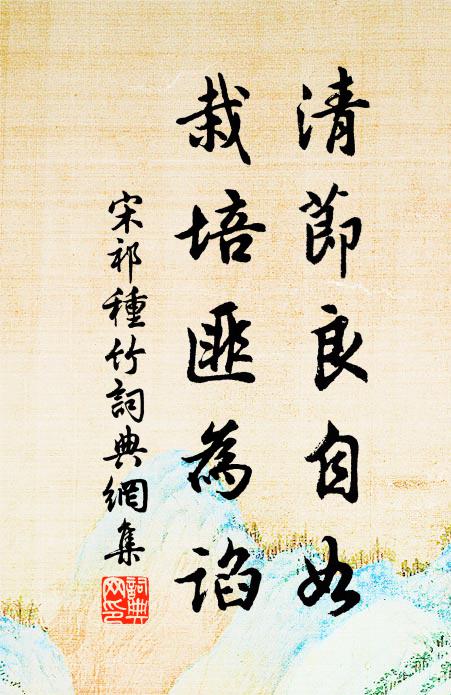 清節良自如
栽培匪為諂
宋祁種竹詞典網集
詞典网印